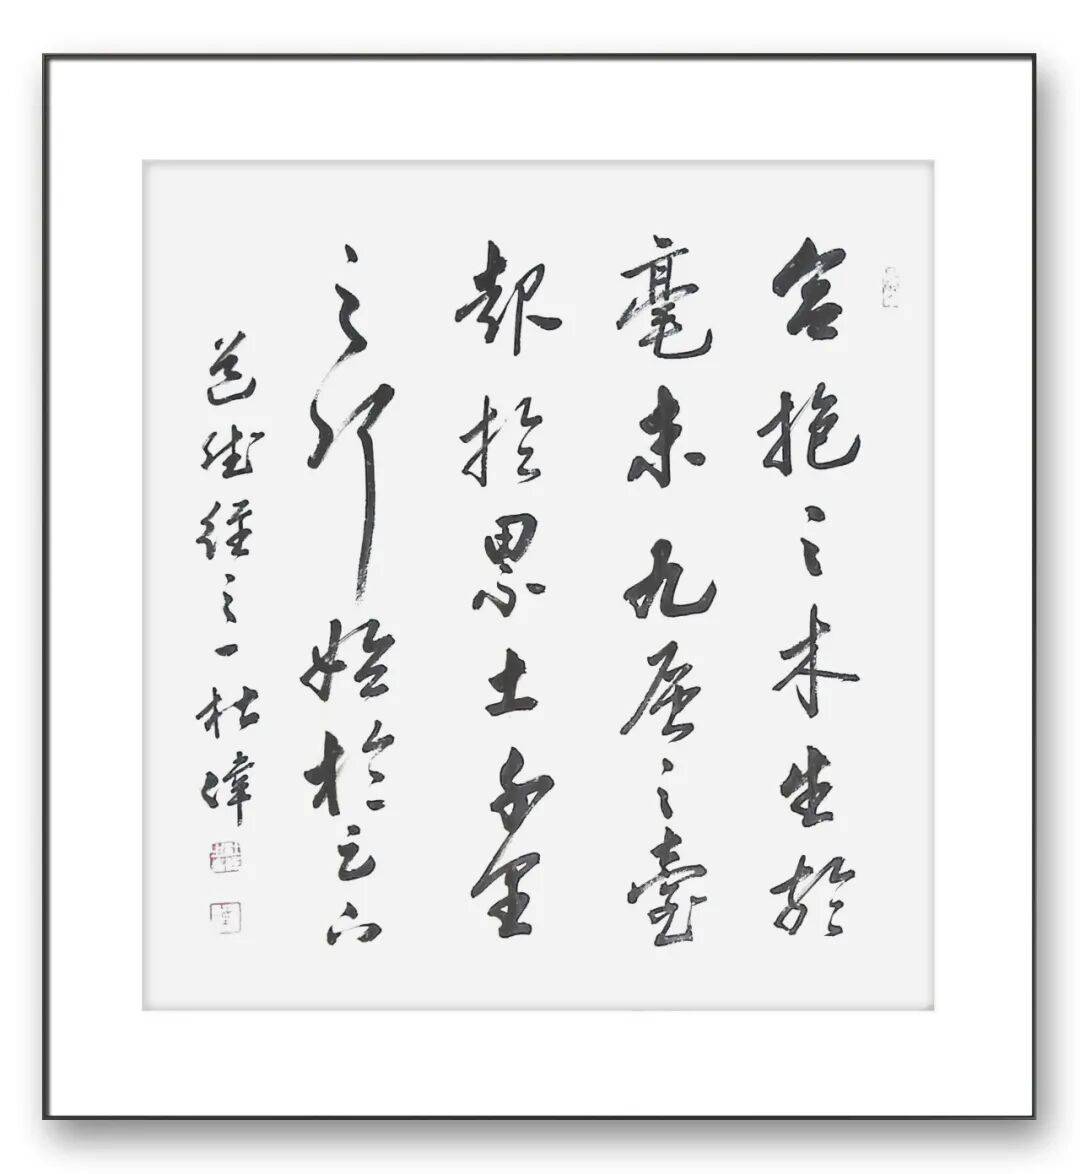 合抱之木生於
毫末九层之臺
起於累土千里
之行始於足下
道德經之一杜偉